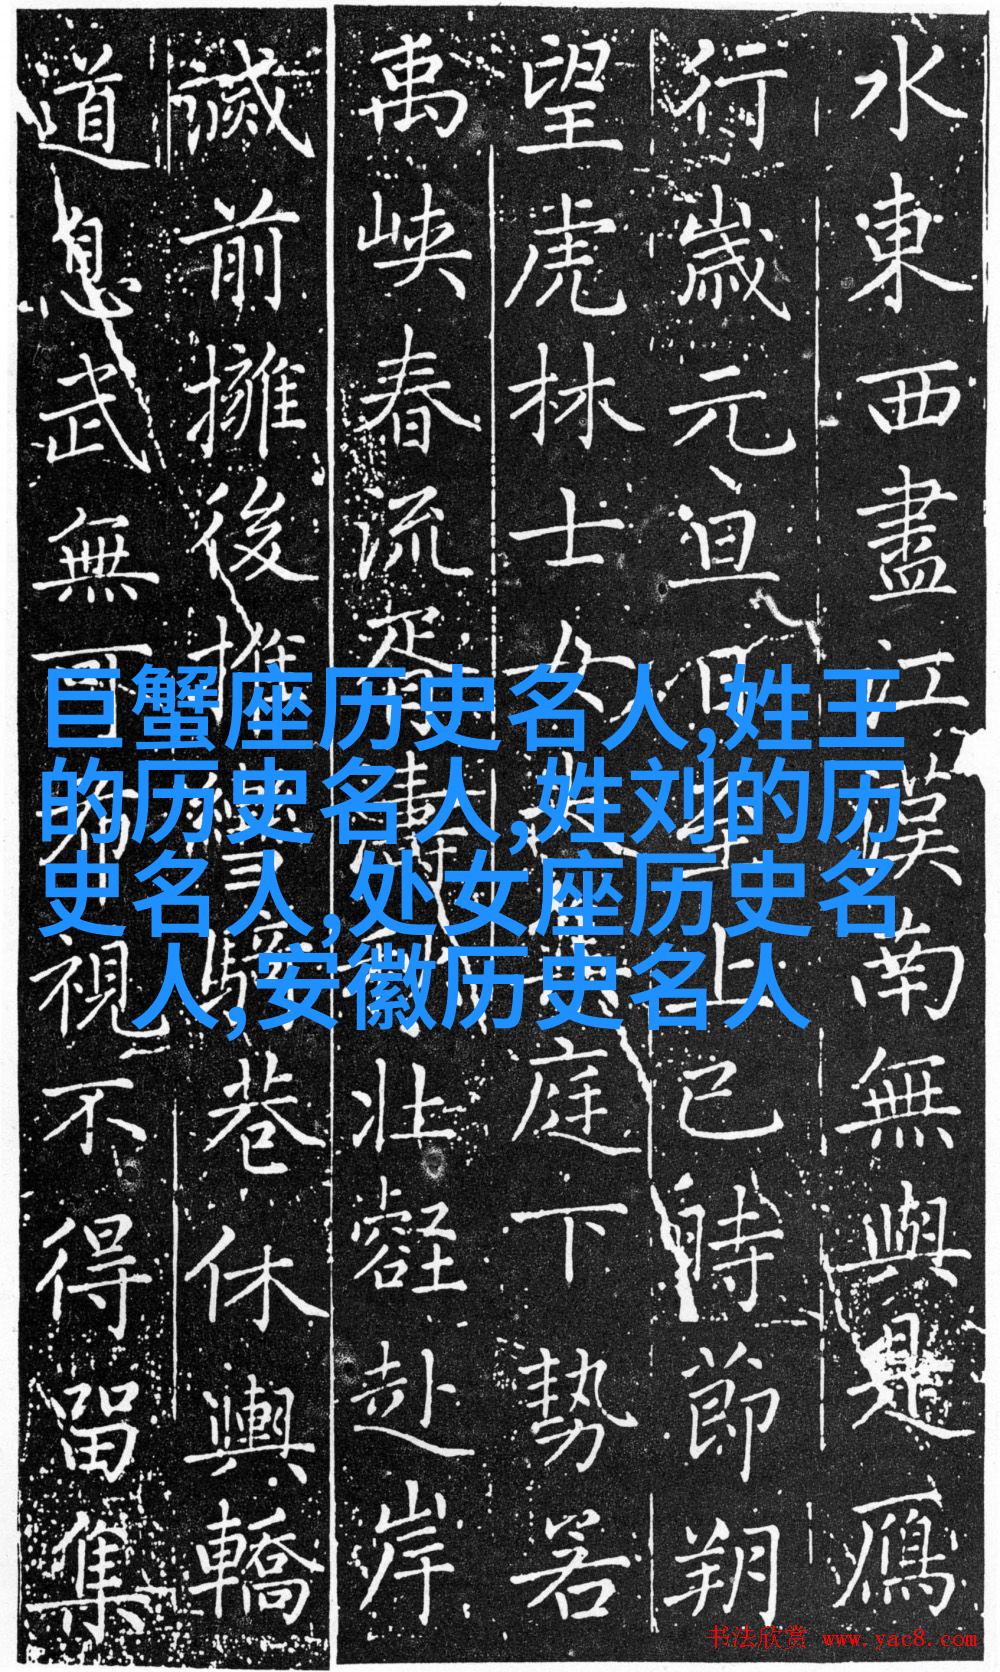 水東西盡江漢南無與是鴈
行歲元旦日上已時節朔
望虎林士女庭下勢若
禹峽春流胥濤壯壑赴岸
滅前擁後推騎巷休輿轎
道息武無可視不得留集
巨蟹座历史名人,姓王
的历史名人,姓刘的历
史名人,处女座历史名
人,安徽历史名人
书法欣赏 www.yac8.com